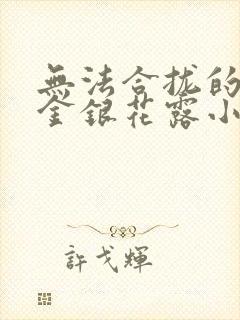 無法合拢的
金銀花露小
許戈輝